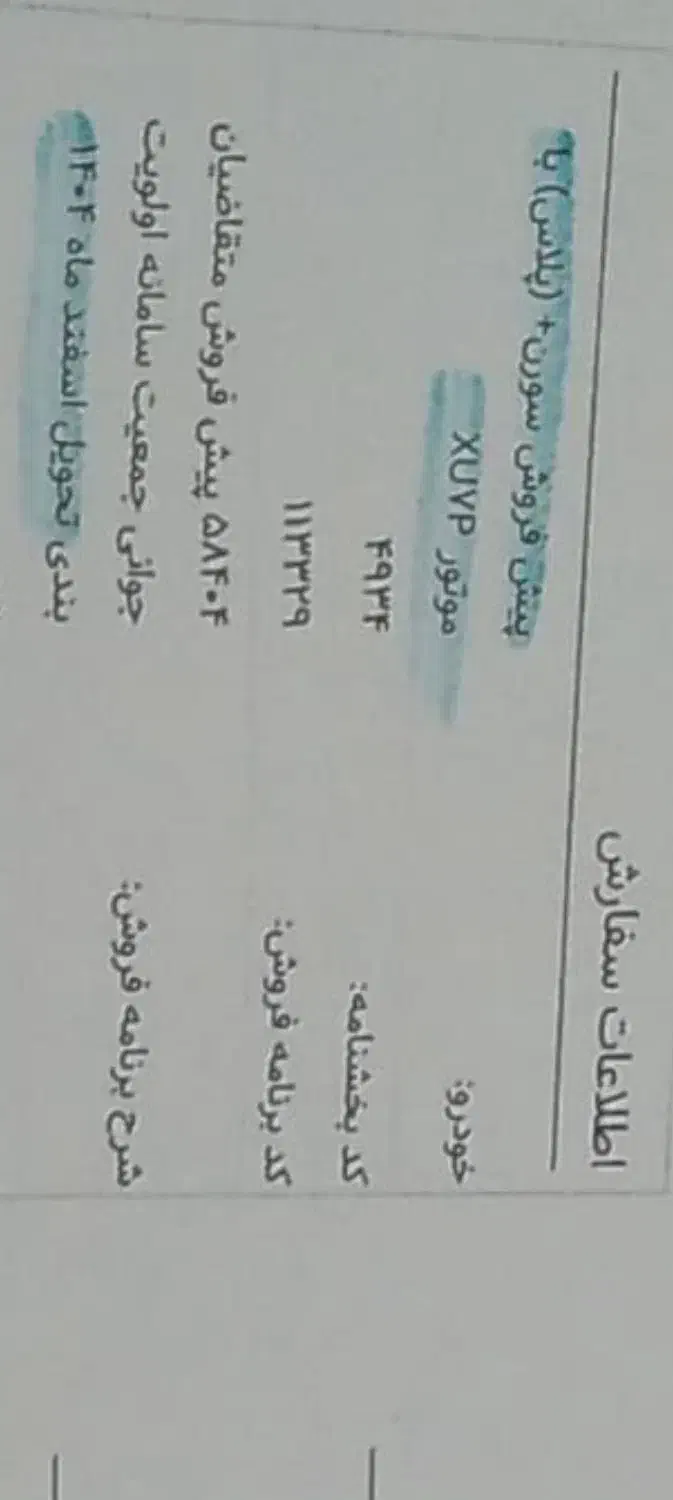 اطلاعات سفارش
خودرو: پیش فروش سورن+ (پلاس) با
موتور XU7P
کد بخشنامه: ۴۹۳۴
کد برنامه فروش: ۱۱۳۳۲۹
شرح برنامه فروش: ۵۸۴۰۴ پیش فروش متقاضیان
جوانی جمعیت سامانه اولویت
بندی تحویل اسفند ماه ۱۴۰۴